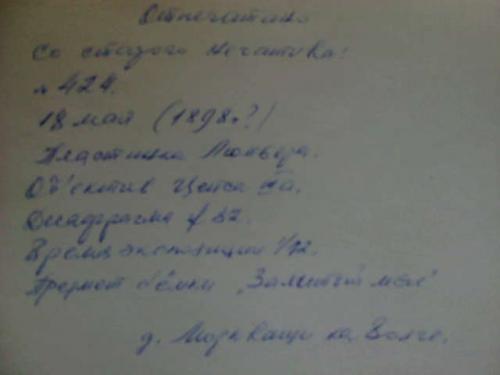 Отпечатано
со старого негатива:
№ 424.
18 мая (1898г?)
Пластинка Люмьера.
Об'ектив Цейса
Диафрагма f 32.
Время экспозиции 1/12
Предмет с'ёмки „Залитый
д. Моркваши на Волге.